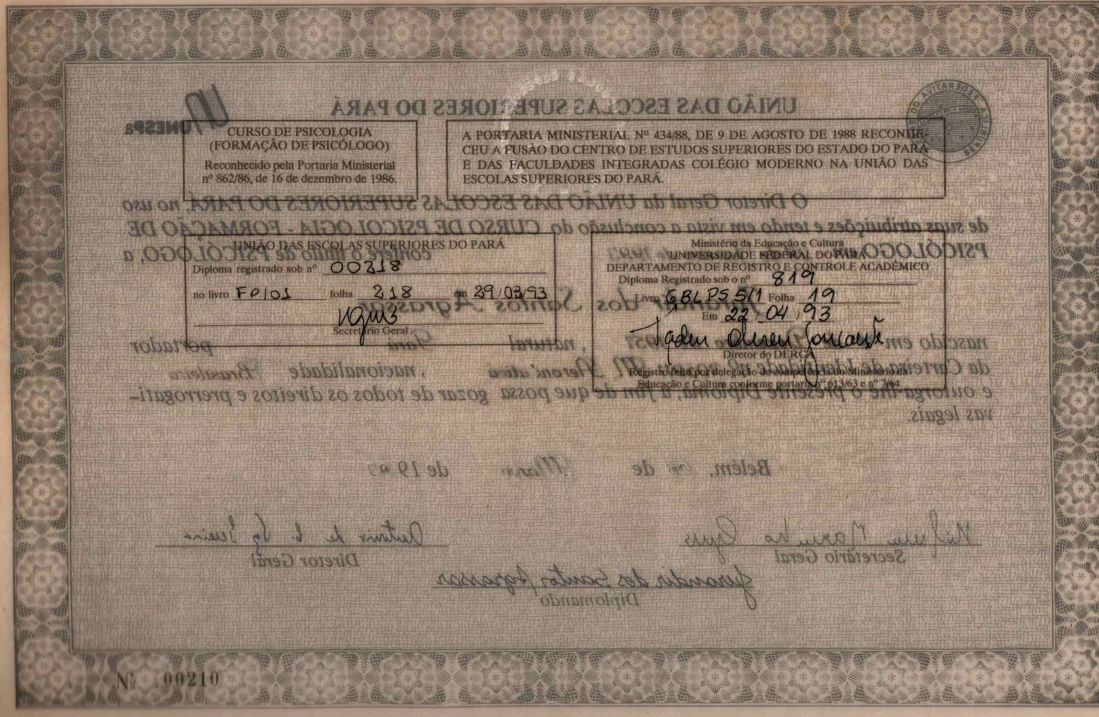 UNIÃO DAS ESCOLAS SUPERIORES DO PARÁ
UNESPa
CURSO DE PSICOLOGIA
(FORMAÇÃO DE PSICÓLOGO)
Reconhecido pela Portaria Ministerial
nº 862/86, de 16 de dezembro de 1986.
A PORTARIA MINISTERIAL Nº 434/88, DE 9 DE AGOSTO DE 1988 RECONHE-
CEU A FUSÃO DO CENTRO DE ESTUDOS SUPERIORES DO ESTADO DO PARÁ
E DAS FACULDADES INTEGRADAS COLÉGIO MODERNO NA UNIÃO DAS
ESCOLAS SUPERIORES DO PARÁ.
O Diretor Geral da UNIÃO DAS ESCOLAS SUPERIORES DO PARÁ, no uso
de suas atribuições e tendo em vista a conclusão do CURSO DE PSICOLOGIA - FORMAÇÃO DE
PSICÓLOGO, confere o título de PSICÓLOGO, a
UNIÃO DAS ESCOLAS SUPERIORES DO PARÁ
Diploma registrado sob nº 00218
no livro FP/01 folha 218 29/03/93
Secretário Geral
Ministério da Educação e Cultura
UNIVERSIDADE FEDERAL DO PARÁ
DEPARTAMENTO DE REGISTRO E CONTROLE ACADÊMICO
Diploma Registrado sob o nº 819
Livro GBLPS 5/1 Folha 19
Em 22/04/93
Diretor do DERCA
Registro feito por delegação de competência do Ministério da
Educação e Cultura conforme portarias nº 613/63 e nº 7/64
Jurandir dos Santos Agrassar
nascido em , natural Pará portador
da Carteira de Identidade nº , nacionalidade Brasileira
e outorga-lhe o presente Diploma, a fim de que possa gozar de todos os direitos e prerrogati-
vas legais.
Belém, de Março de 1993
Secretário Geral
Diretor Geral
Jurandir dos Santos Agrassar
Diplomando
Nº 00210